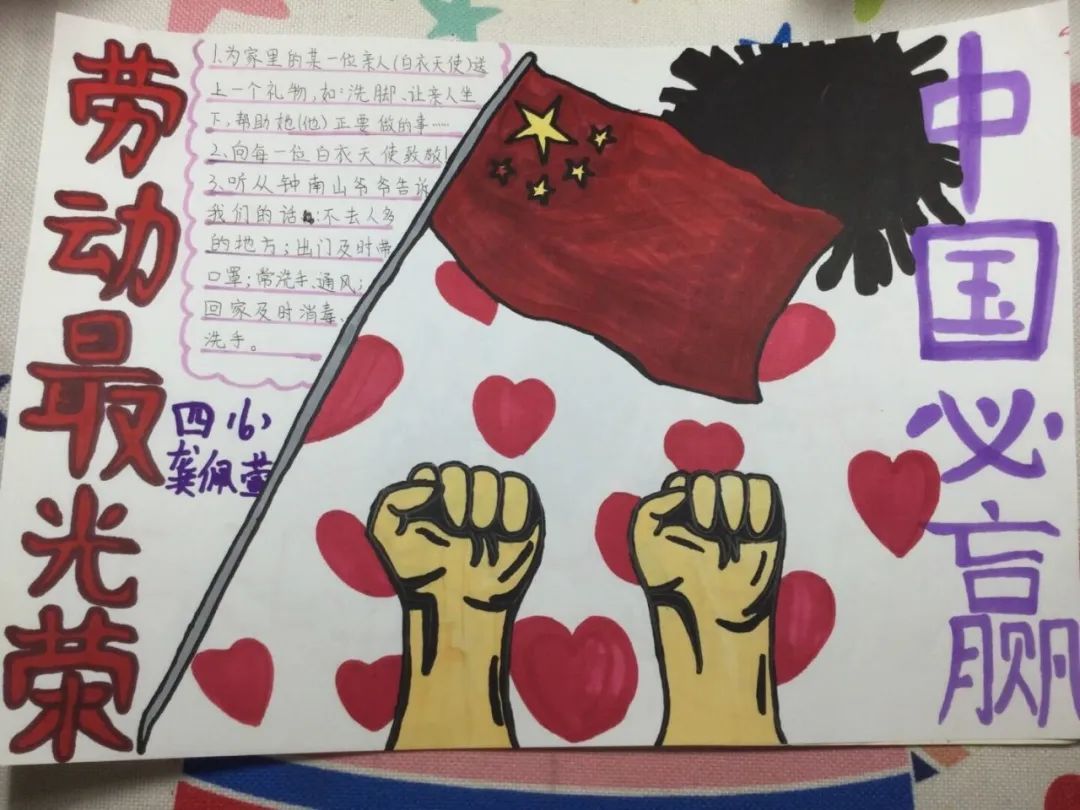 劳动最光荣
1.为家里的某一位亲人(白衣天使)送
上一个礼物,如:洗脚、让亲人坐
下,帮助她(他)正要做的事……
2.向每一位白衣天使致敬!
3.听从钟南山爷爷告诉
我们的话:不去人多
的地方;出门及时带
口罩;常洗手、通风;
回家及时消毒、
洗手。
四(6)
龚佩萱
中国必赢